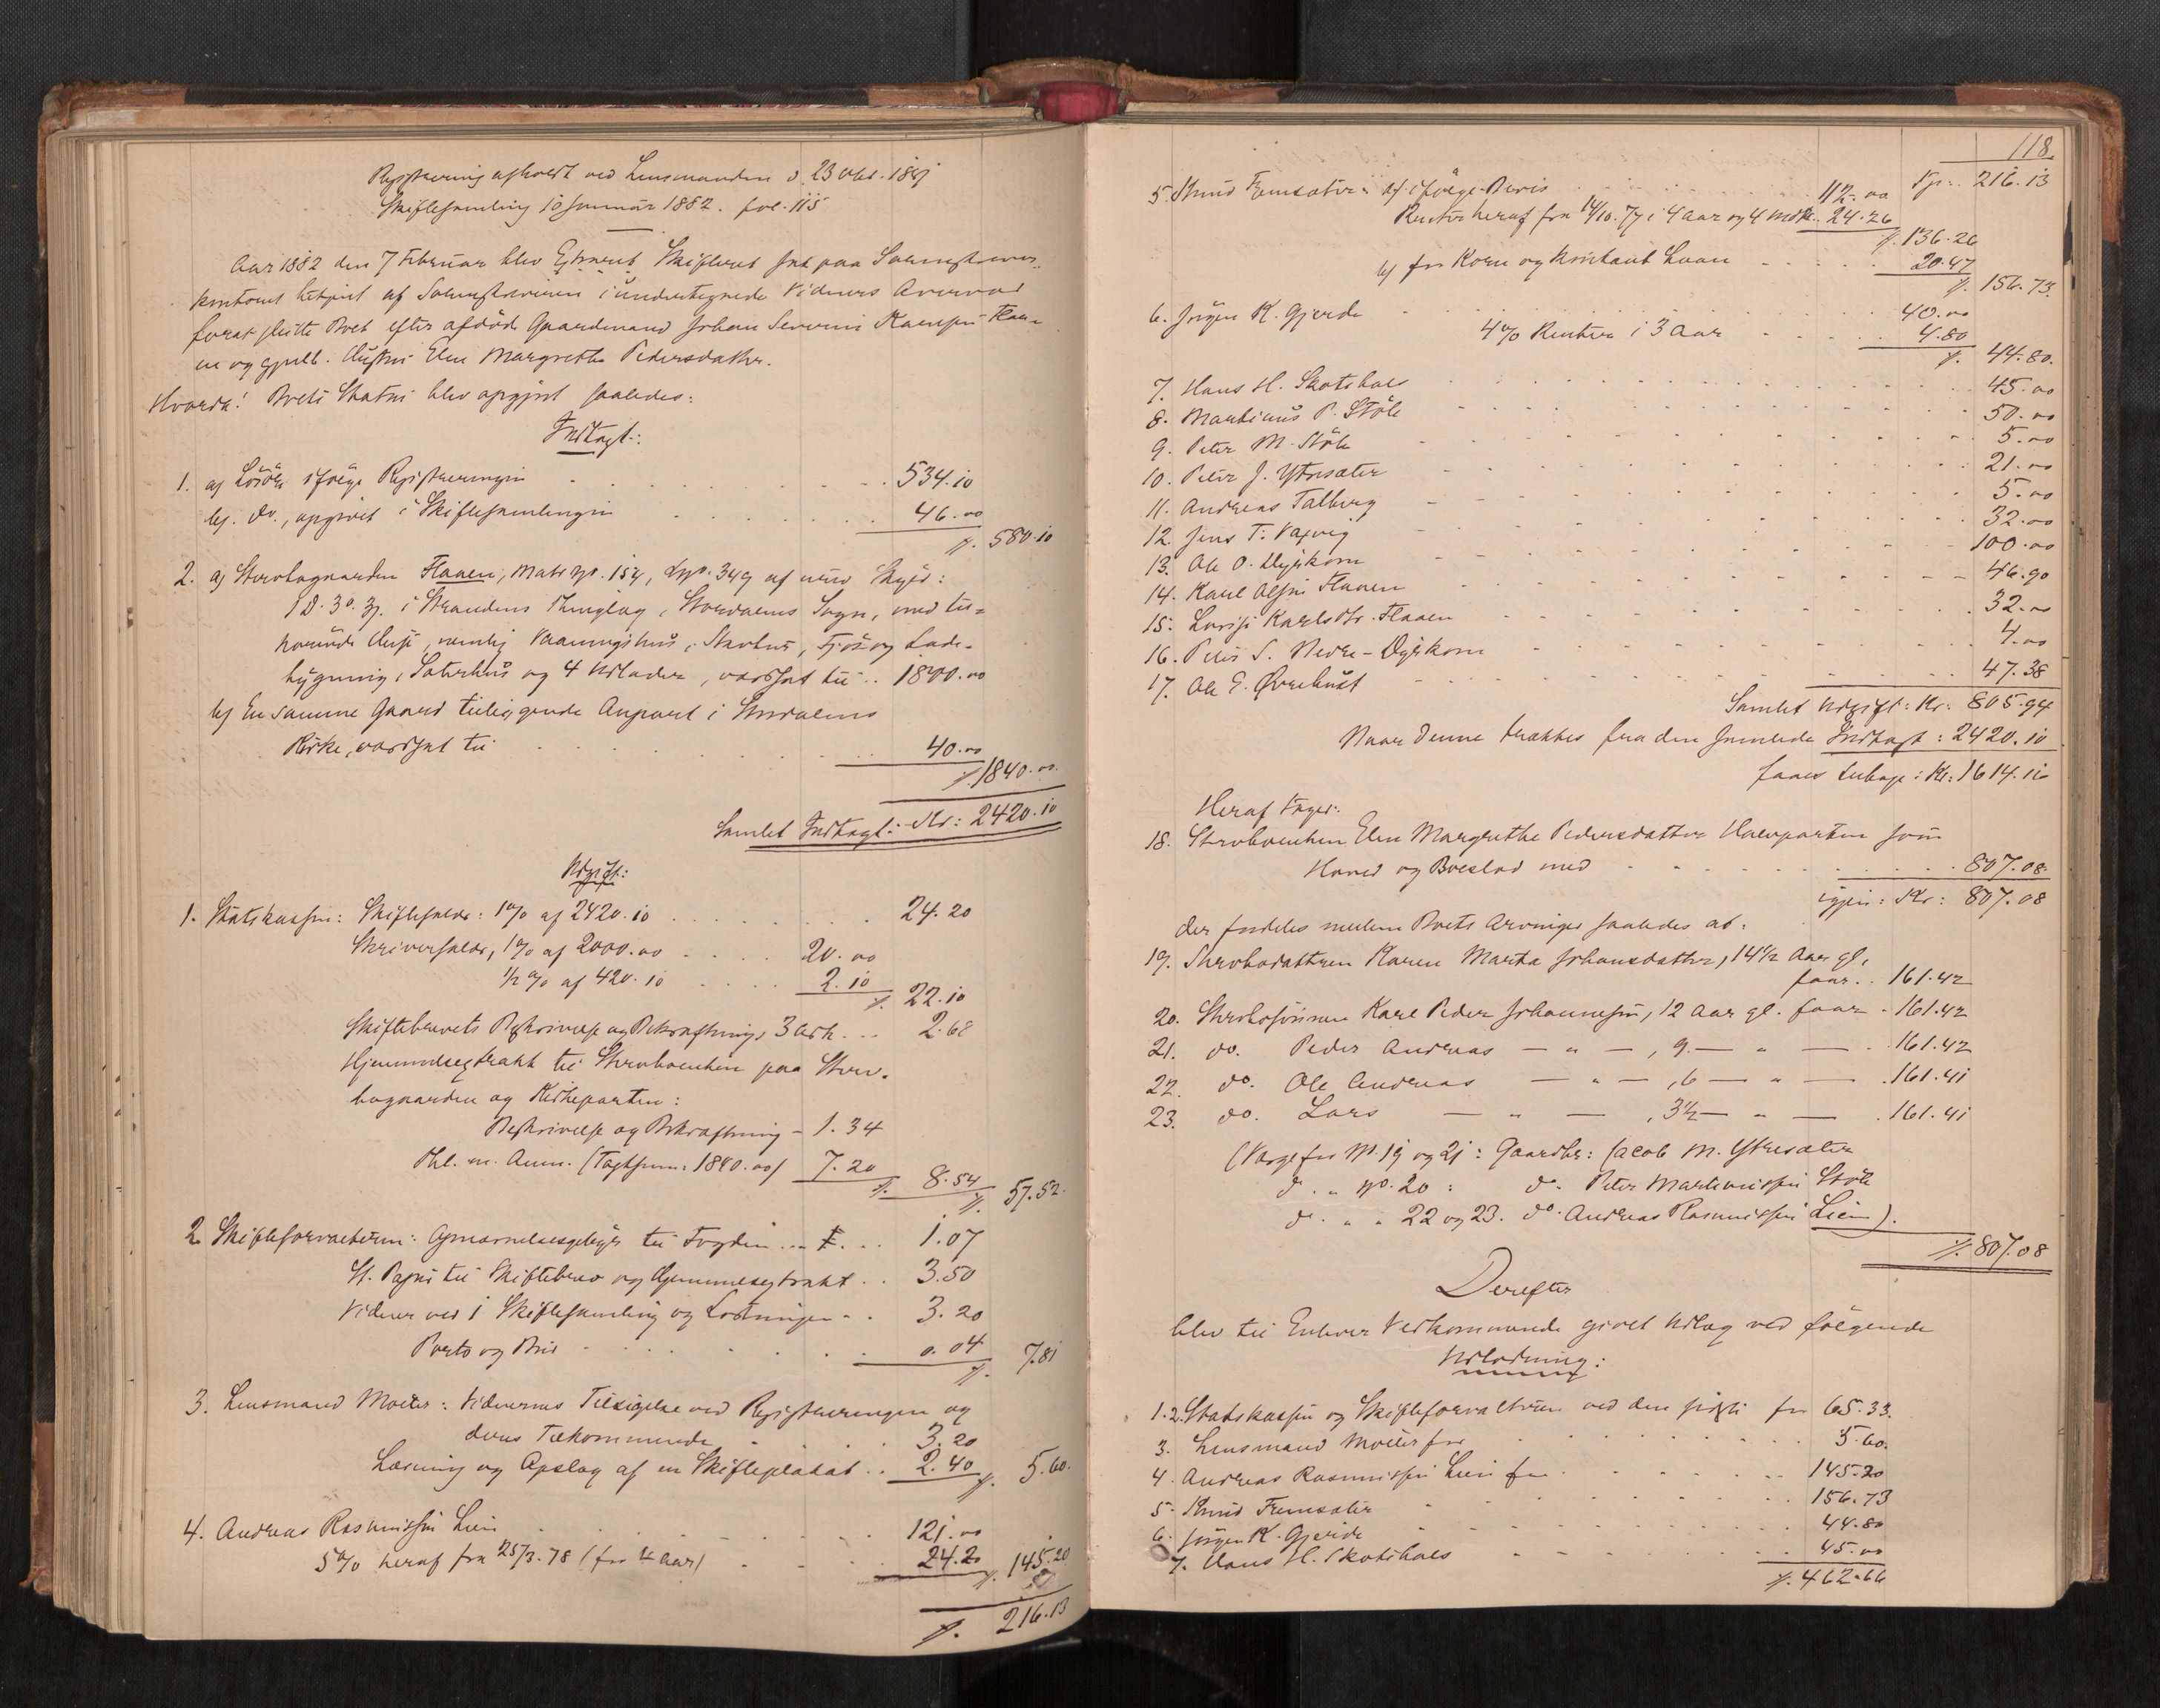 Registrering afholdt ved Lensmanden d. 23 Okt. 1881
Skiftesamling 10 Januar 1882. fol. 115
Aar 1882 den 7 Februar blev Extraret Skifteret sat paa Sorenskriver-
kontoret betjent af Sorenskriveren i undertegnede Vidners Overvær
forat slutte Boet efter afdøde Gaardmand Johan Severin Karlsen Flaa-
en og gjenl. Hustru Elen Margrethe Pedersdatter.
Hvorda! Boets Status blev opgjort saaledes:
Indtægt:
1. a) Løsøre ifølge Registreringen 534.10
b). do., opgivet i Skiftesamlingen 46.00
/. 580.10
2. a) Stervbogaarden Flaaen, Matr. No. 154, Lno. 349 af urev. Skyld:
1 D. 3 O. 3 s. i Strandens Thinglag, Stordalens Sogn, med til-
hørende Huse, nemlig Vaaningshus, Stabur, Fjøs og Lade-
bygning, Sæterhus og 4 Udlader, værdsat til .. 1800.00
b) En samme Gaard tilliggende Anpart i Stordalens
Kirke, værdsat til 40.00
/. 1840.00
Samlet Indtægt: Kr: 2420.10
Udgift:
1. Statskassen: Skiftesalær: 1% af 2420.10 24.20
Skriversalær, 1% af 2000.00 20.00
1/2 % af 420.10 2.10
/. 22.10
Skiftebrevets Beskrivelse og Bekræftning, 3 Ark 2.68
Hjemmelsextrakt til Stervboenken paa Sterv-
bogaarden og Kirkeparten:
Beskrivelse og Bekræftning - 1.34
Thl. m. Anm. (Taxtsum: 1840.00) 7.20
/. 8.54
/. 57.52
2. Skifteforvalteren: Opnævnelsesgebyr til Fogden 1.07
St. Papir til Skiftebrev og Hjemmelsextrakt 3.50
Vidner ved 1 Skiftesamling og Lodningen 3.20
Porto og Bud 0.04
/. 7.81
3. Lensmand Moltu: Vidnernes Tilsigelse ved Registreringen og
deres Tilkommende 3.20
Læsning og Opslag af en Skifteplakat 2.40
/. 5.60
4. Andreas Rasmussen Lien 121.00
5% heraf fra 25/3.78 (for 4 Aar) 24.20
/. 145.20
/. 216.13
118.
Tp. 216.13
5. Knud Fremsæter: a) ifølge Bevis 112.00
Renter heraf fra 14/10.77 i 4 Aar og 4 Mdr. 24.26
/. 136.26
b) for Korn og kontant Laan 20.47
/. 156.73.
6. Jørgen K. Gjerde 40.00
4% Renter i 3 Aar 4.80
/. 44.80.
7. Hans H. Skotshals 45.00
8. Martinus P. Støle 50.00
9. Peter M. Støle 5.00
10. Peter J. Ytresæter 21.00
11. Andreas Talberg 5.00
12. Jens T. Vaxvig 32.00
13. Ole O. Dyrkorn 100.00
14. Karl Olsen Flaaen 46.90
15. Lovise Karlsdtr. Flaaen 32.00
16. Peter S. Nedre-Dyrkorn 4.00
17. Ole E. Øvrebust 47.38
Samlet Udgift: Kr: 805.94
Naar denne trækkes fra den samlede Indtægt: 2420.10
faaes tilbage: Kr: 1614.16
Heraf tager:
18. Stervboenken Elen Margrethe Pedersdatter Halvparten som
Hoved og Boeslod med 807.08.
igjen: Kr: 807.08
der fordeles mellem Boets Arvinger saaledes at:
19. Stervbodatteren Karen Marta Johansdatter, 14 1/2 Aar gl,
faar .. 161.42
20. Stervbosønnen Karl Peder Johannesen, 12 Aar gl. faar - 161.42
21. do. Peder Andreas — " — , 9 — " — 161.42
22. do. Ole Andreas — " — , 6 — " — 161.41
23. do. Lars — " — , 3 1/2 — " — 161.41
(Værge for No. 19 og 21: Gaardbr: Jacob M. Ytresæter
d. " No. 20: do. Peter Martinussen Støle
d. " " 22 og 23. do. Andreas Rasmussen Lien).
/. 807.08
Derefter
blev til Enhver Vedkommende givet Udlæg ved følgende
Udlodning:
1.2. Statskassen og Skifteforvalteren ved den sidste for 65.33.
3. Lensmand Moltu for 5.60.
4. Andreas Rasmussen Lien for 145.20
5. Knud Fremsæter 156.73
6. Jørgen K. Gjerde 44.80
7. Hans H. Skotshals 45.00
/. 462.66